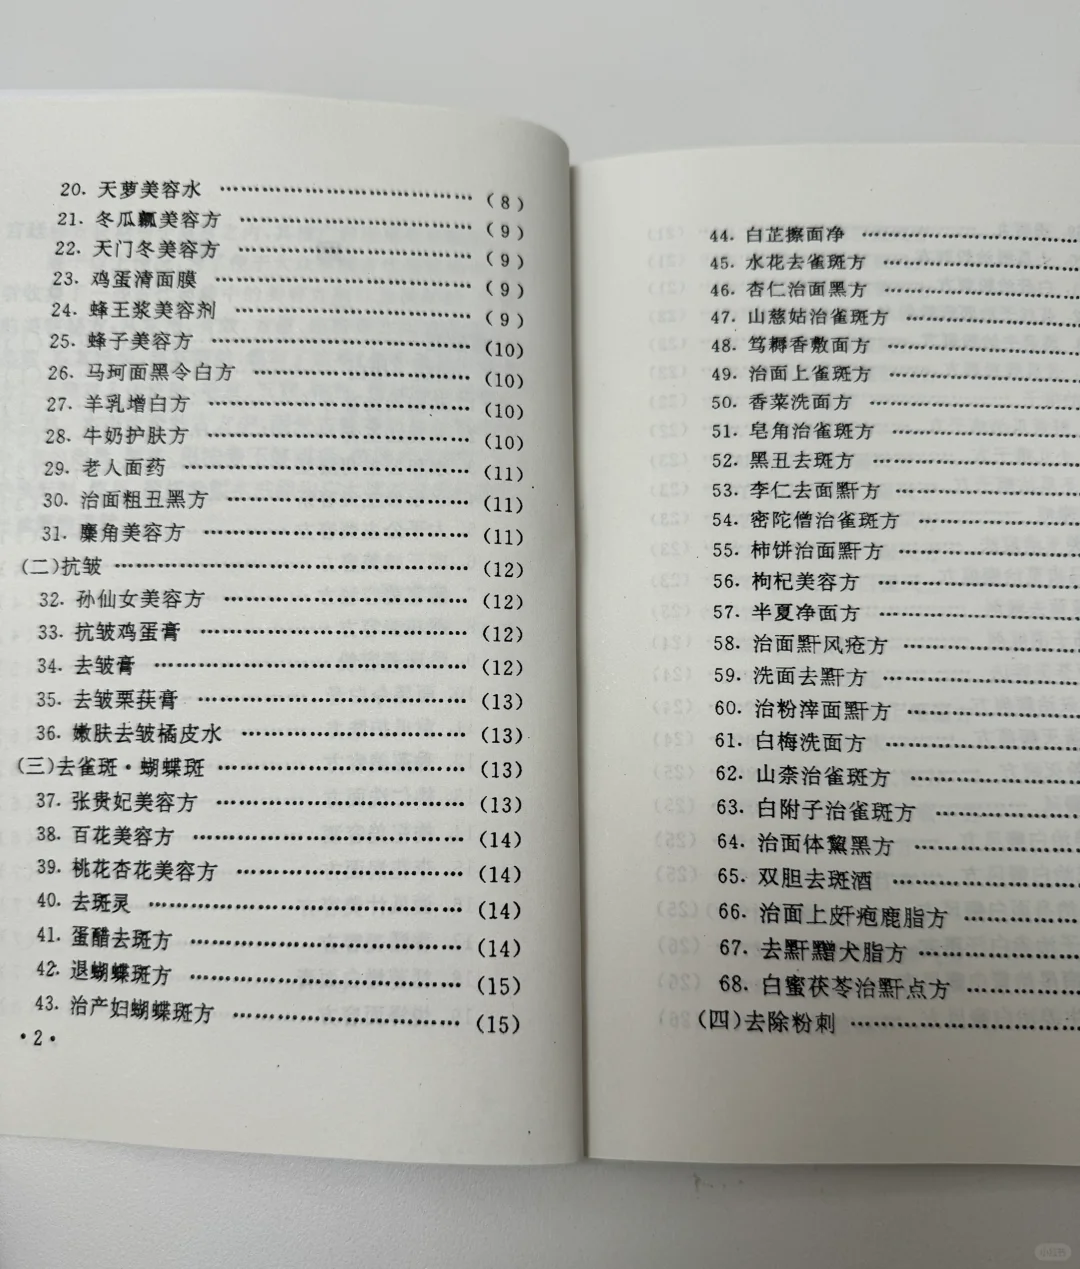 20. 天萝美容水 ………………………… (8)
21. 冬瓜瓤美容方 ………………………… (9)
22. 天门冬美容方 ………………………… (9)
23. 鸡蛋清面膜 ………………………… (9)
24. 蜂王浆美容剂 ………………………… (9)
25. 蜂子美容方 ………………………… (10)
26. 马珂面黑令白方 ………………………… (10)
27. 羊乳增白方 ………………………… (10)
28. 牛奶护肤方 ………………………… (10)
29. 老人面药 ………………………… (11)
30. 治面粗丑黑方 ………………………… (11)
31. 麋角美容方 ………………………… (11)
(二)抗皱 ………………………… (12)
32. 孙仙女美容方 ………………………… (12)
33. 抗皱鸡蛋膏 ………………………… (12)
34. 去皱膏 ………………………… (12)
35. 去皱栗荴膏 ………………………… (13)
36. 嫩肤去皱橘皮水 ………………………… (13)
(三)去雀斑·蝴蝶斑 ………………………… (13)
37. 张贵妃美容方 ………………………… (13)
38. 百花美容方 ………………………… (14)
39. 桃花杏花美容方 ………………………… (14)
40. 去斑灵 ………………………… (14)
41. 蛋醋去斑方 ………………………… (14)
42. 退蝴蝶斑方 ………………………… (15)
43. 治产妇蝴蝶斑方 ………………………… (15)
·2·
44. 白芷擦面净 …………………………
45. 水花去雀斑方 …………………………
46. 杏仁治面黑方 …………………………
47. 山慈姑治雀斑方 …………………………
48. 笃耨香敷面方 …………………………
49. 治面上雀斑方 …………………………
50. 香菜洗面方 …………………………
51. 皂角治雀斑方 …………………………
52. 黑丑去斑方 …………………………
53. 李仁去面䵟方 …………………………
54. 密陀僧治雀斑方 …………………………
55. 柿饼治面䵟方 …………………………
56. 枸杞美容方 …………………………
57. 半夏净面方 …………………………
58. 治面䵟风疮方 …………………………
59. 洗面去䵟方 …………………………
60. 治粉滓面䵟方 …………………………
61. 白梅洗面方 …………………………
62. 山柰治雀斑方 …………………………
63. 白附子治雀斑方 …………………………
64. 治面体黧黑方 …………………………
65. 双胆去斑酒 …………………………
66. 治面上皯疱鹿脂方 …………………………
67. 去䵟䵴犬脂方 …………………………
68. 白蜜茯苓治䵟点方 …………………………
(四)去除粉刺 …………………………
小红书